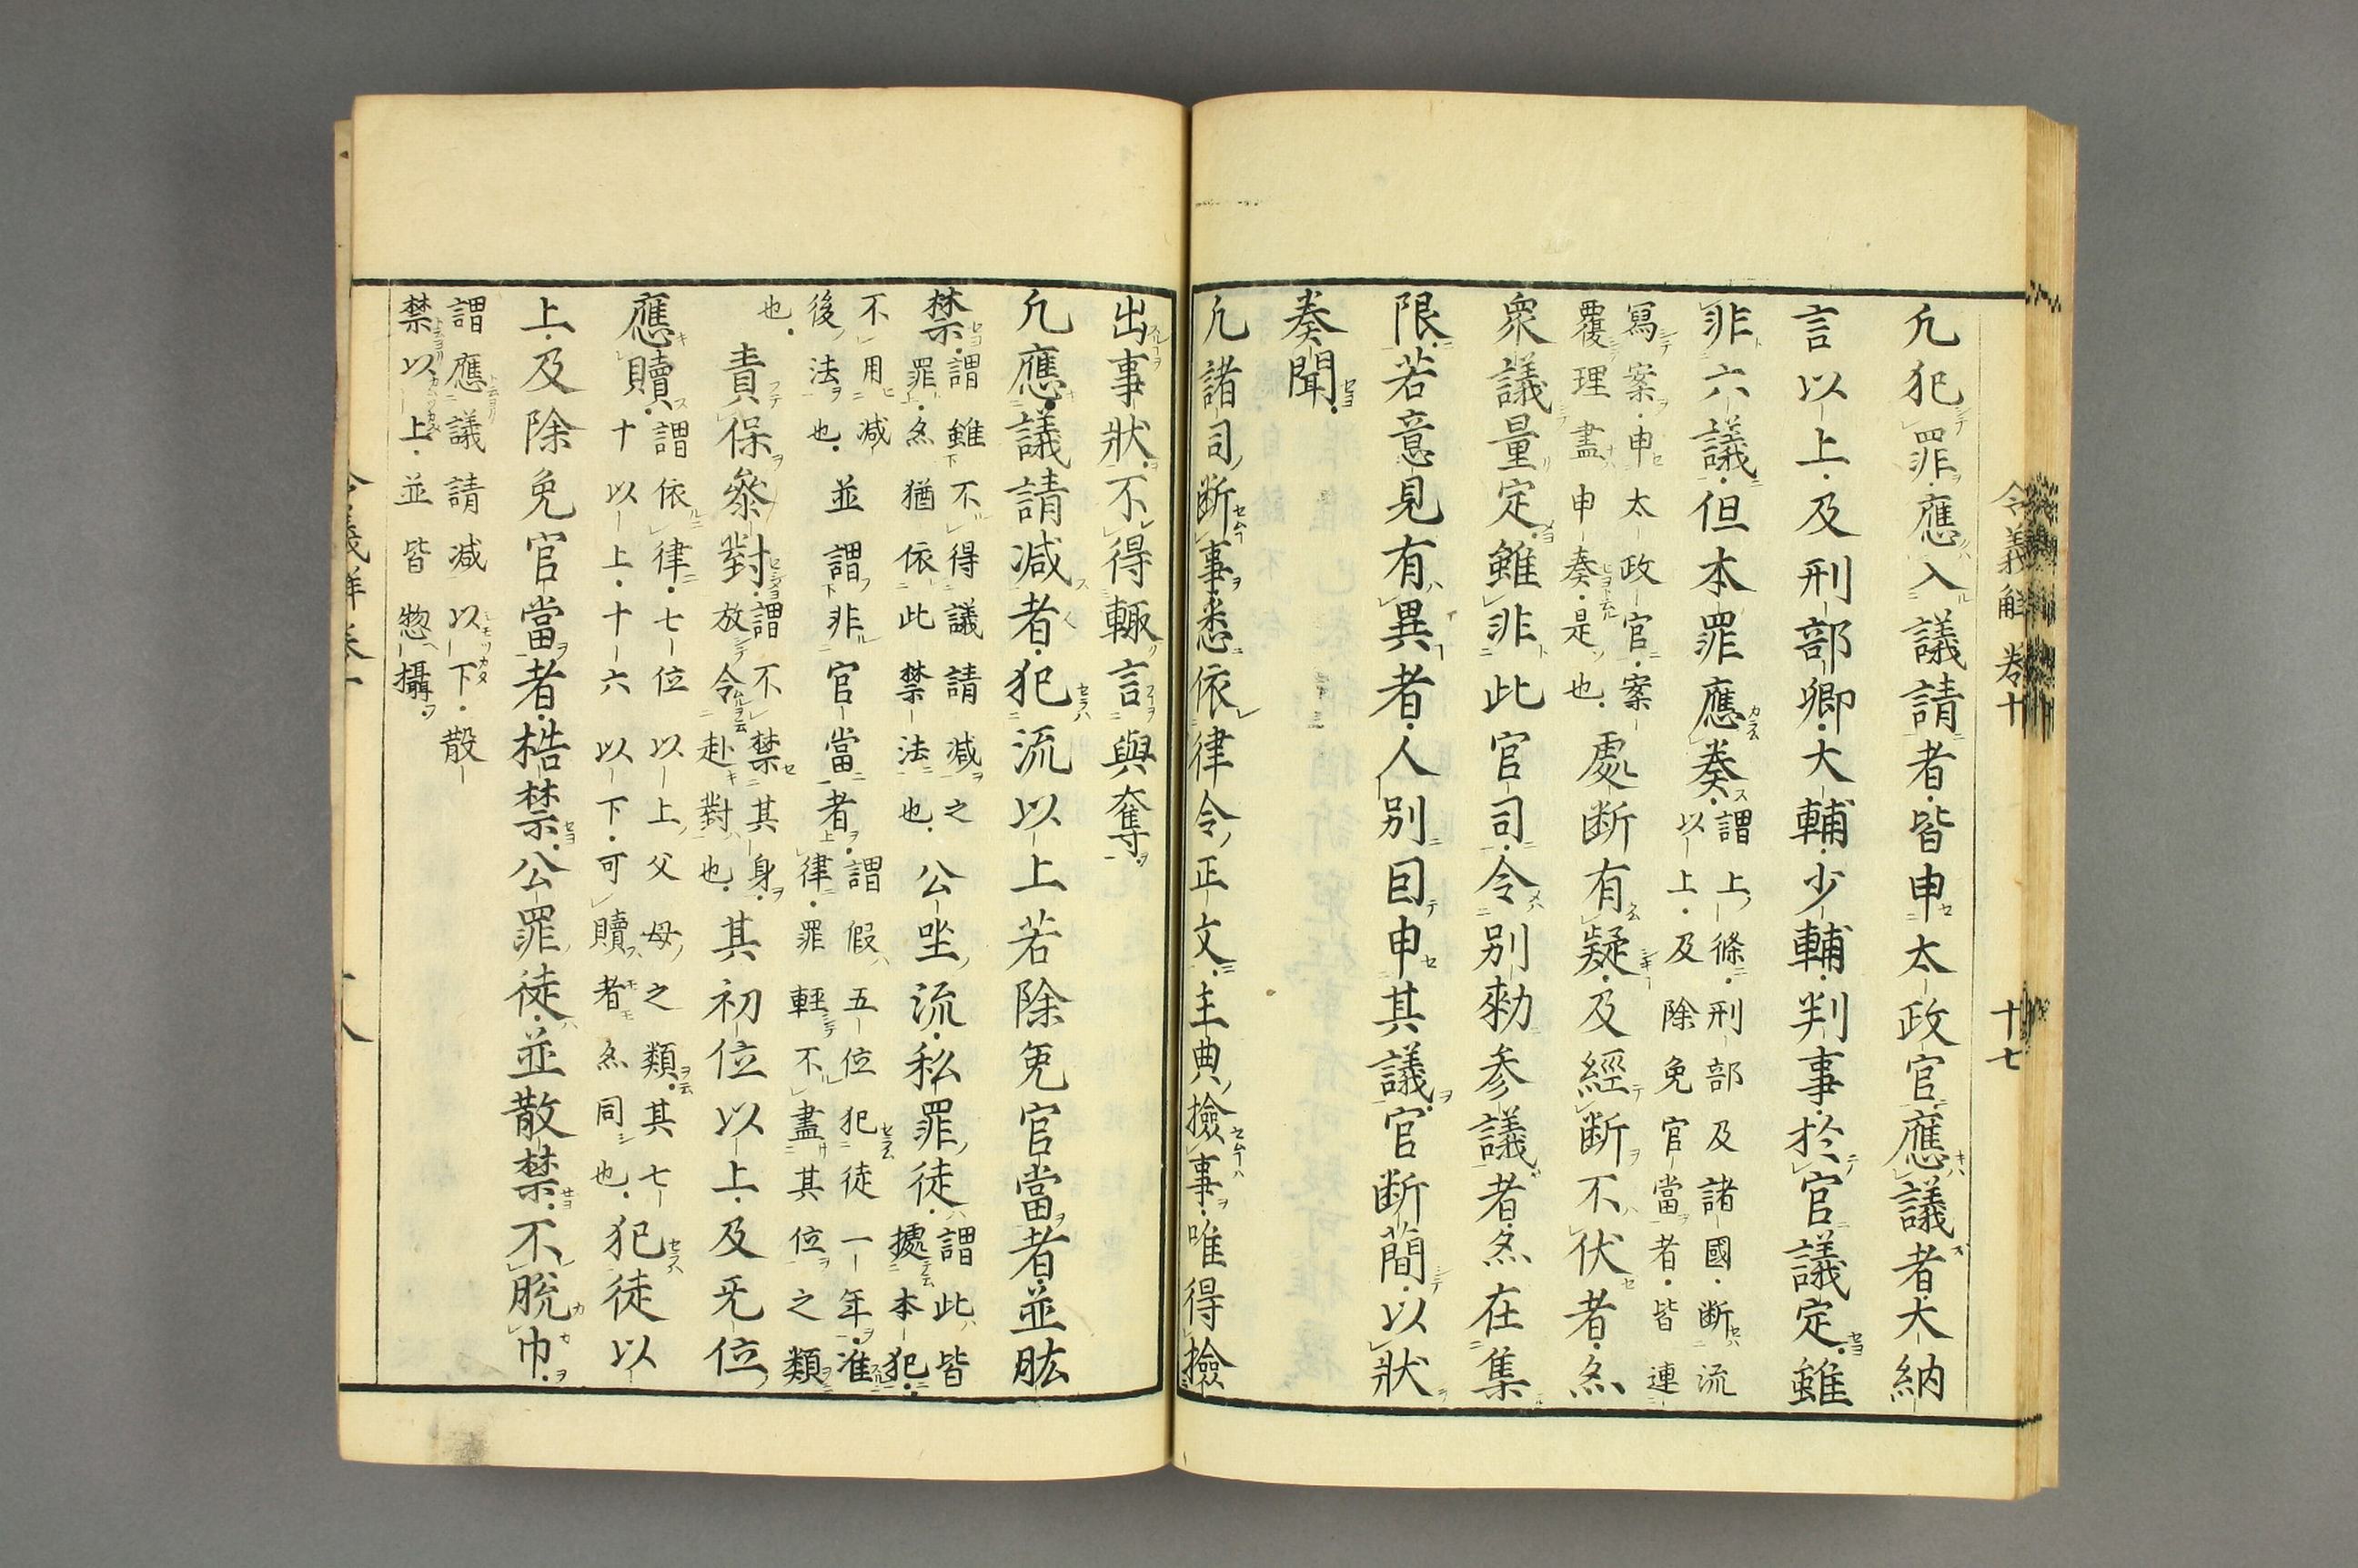 令義解卷十　十七
凢犯罪應入議請者皆申太政官應議者大納
言以上及刑部卿大輔少輔判事於官議定雖
非六議但本罪應奏謂上條刑部及諸國断流以上及除免官當者皆連
寫案申太政官案覆理盡申奏是也處断有疑及經断不伏者亦
衆議量定雖非此官司令別勅参議者亦在集
限若意見有異者人別因申其議官断蕑以狀
奏聞
凢諸司断事悉依律令正文主典撿事唯得撿
出事狀不得輙言與奪
凢應議請减者犯流以上若除免官當者並肱
禁謂雖不得議請减之罪亦猶依此禁法也公坐流私罪徒謂此皆據本犯
不用减後法也並謂非官當者謂假五位犯徒一年准律罪輕不盡其位之類
也責保參對謂不禁其身放令赴對也其初位以上及无位
應贖謂依律七位以上父母之類其七十以上十六以下可贖者亦同也犯徒以
上及除免官當者梏禁公罪徒並散禁不脫巾
謂應議請减以下散
禁以上並皆惣攝